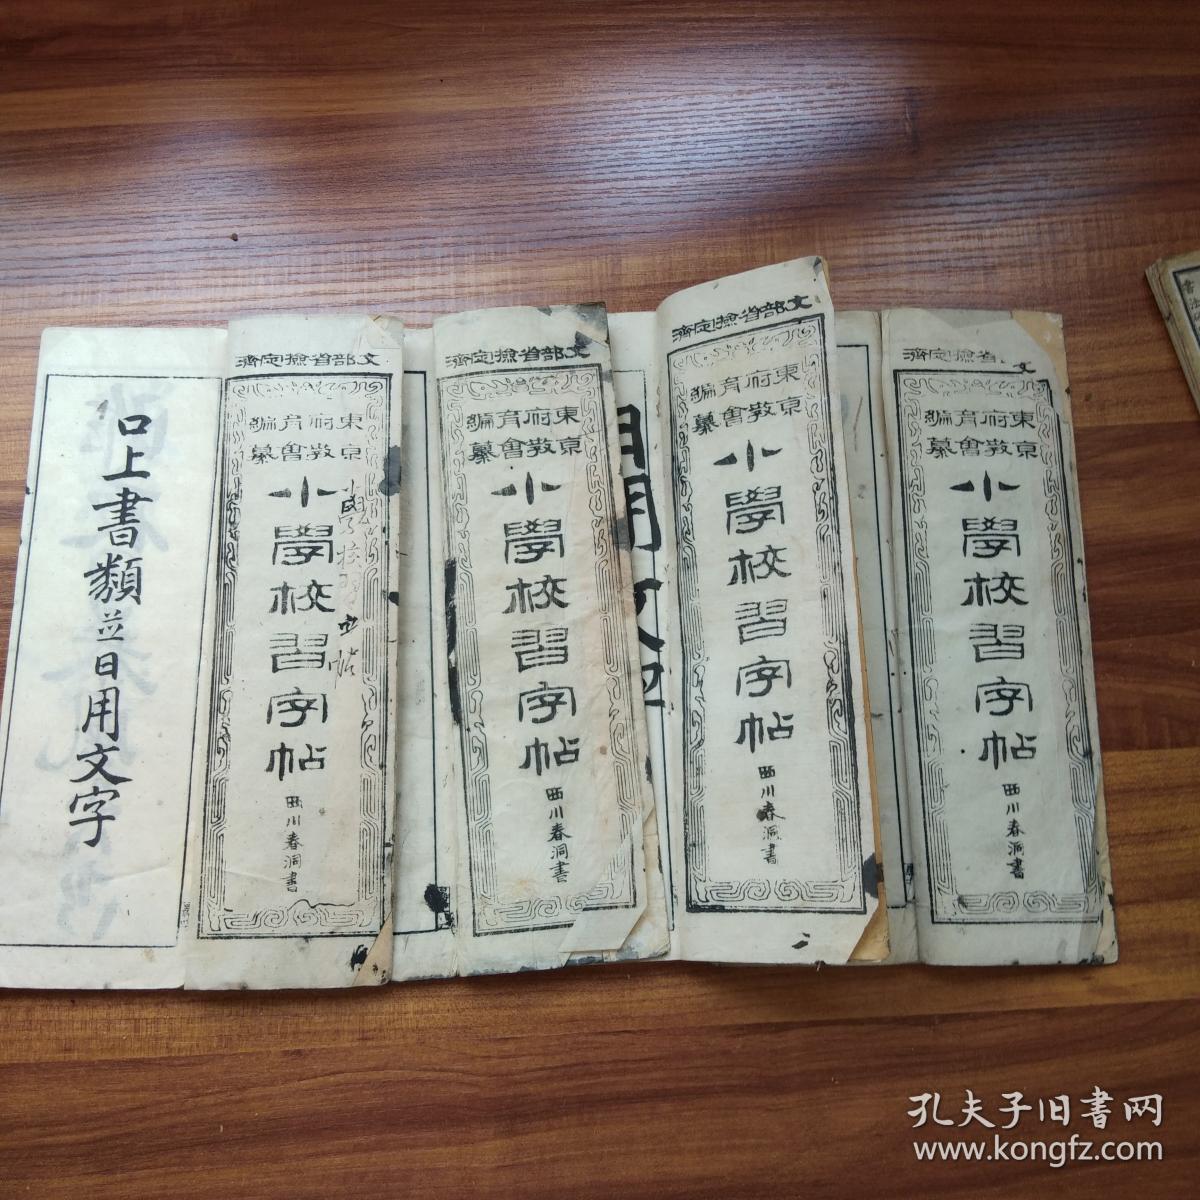 口上書類並日用文字
文部省撿定濟
東京
府教
育會
編纂
小學校習字帖
西川春洞書
小學校習字帖
文部省撿定濟
東京
府教
育會
編纂
小學校習字帖
西川春洞書
日用文字
文部省撿定濟
東京
府教
育會
編纂
小學校習字帖
西川春洞書
文部省撿定濟
東京
府教
育會
編纂
小學校習字帖
西川春洞書
孔夫子旧书网
www.kongfz.com